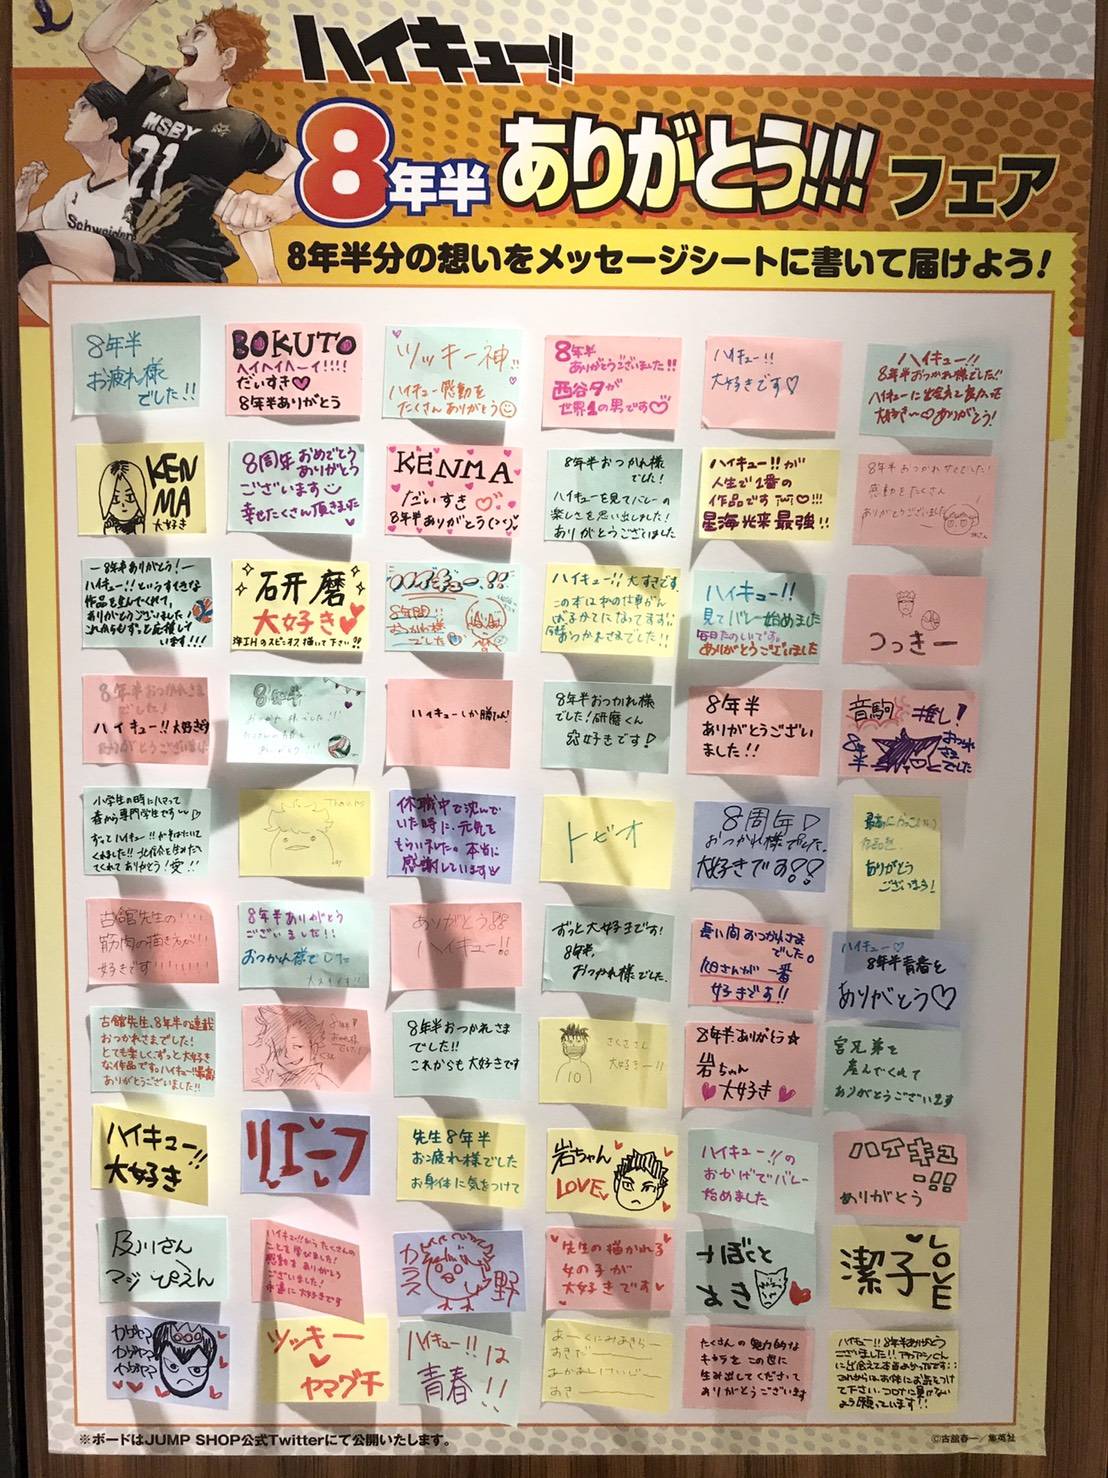 ハイキュー!!
MSBY
21
Schweiden
8年半 ありがとう!!! フェア
8年半分の想いをメッセージシートに書いて届けよう!
8年半
お疲れ様
でした!!
BOKUTO
ヘイヘイヘーイ!!!!
だいすき♡
8年半ありがとう
ツッキー神!!
ハイキュー感動を
たくさんありがとう
8年半
ありがとうございました!!
西谷夕が
世界1の男です♡
ハイキュー!!
大好きです♡
ハイキュー!!
8年半おつかれ様でした!!
ハイキューに出会えて良かった
大好き〜♡ありがとう!
KEN
MA
大好き
8周年おめでとう
ありがとう
ございます
幸せたくさん頂きました
KENMA
だいすき♡
8年半ありがとう
8年半おつかれ様
でした!
ハイキューを見てバレーの
楽しさを思い出しました!
ありがとうございました
ハイキュー!!が
人生で1番の
作品です!!!
星海光来最強!!
8年半おつかれさまでした!
感動をたくさん
ありがとうございました
ー8年半ありがとう!ー
ハイキュー!!というすてきな
作品を生んでくれて、
ありがとうございました
これからもずっと応援して
います!!!
研磨
大好き♥
ハイキュー!!
8年間!!
おつかれ様
でした
ハイキュー!!大すきです
おつかれさまでした!!
ハイキュー!!
見てバレー始めました
毎日たのしいです。
ありがとうございました
つっきー
8年半おつかれさま
でした!
ハイキュー!!大好き
ありがとうございました
8年半
8年半おつかれ様
でした!研磨くん
大好きです!
8年半
ありがとうござい
ました!!
音駒推し!
8年半
おつかれさま
でした
小学生の時にハマって
春から専門学生です
ずっとハイキュー!!がそばにいて
くれました!!
くれてありがとう!愛!!
Thanks
休職中で沈んで
いた時に、元気を
もらいました。本当に
感謝しています
トビオ
8周年♡
おつかれ様でした。
大好きです!!
ありがとう
ございます!
古舘先生の!!!!
筋肉の描き方が!!!
好きです!!!!!!
8年半ありがとう
ございました!!
おつかれ様でした
ありがとう!!
ハイキュー!!
ずっと大好きです!
8年半、
おつかれ様でした。
長い間おつかれさま
でした。
一番
好きです!!
ハイキュー♡
8年半青春を
ありがとう♡
古舘先生、8年半の連載
おつかれさまでした!
とても楽しく、ずっと大好き
な作品です。ハイキュー最高!
ありがとうございました!!
8年半おつかれさま
でした!!
これからも大好きです
10
大好きー!!
8年半ありがとう☆
岩ちゃん
大好き
宮兄弟を
産んでくれて
ありがとうございます
ハイキュー!!
大好き
リエーフ
先生8年半
お疲れ様でした
お身体に気をつけて
岩ちゃん
LOVE♥
ハイキュー!!の
おかげでバレー
始めました
ハイキュ
ー!!
ありがとう
及川さん
マジぴえん
ハイキュー!!からたくさんの
ことを学びました!
感動をありがとう
ございました!
永遠に大好きです
カラス
野
先生の描かれる
女の子が
大好きです♥
潔子
LOVE
ツッキー
♥
ヤマグチ
ハイキュー!!は
青春!!
たくさんの魅力的な
キャラをこの世に
生み出してくださって
ありがとうございます
ハイキュー!!8年半ありがとう
ございました!!
※ボードはJUMP SHOP公式Twitterにて公開いたします。
©古舘春一／集英社